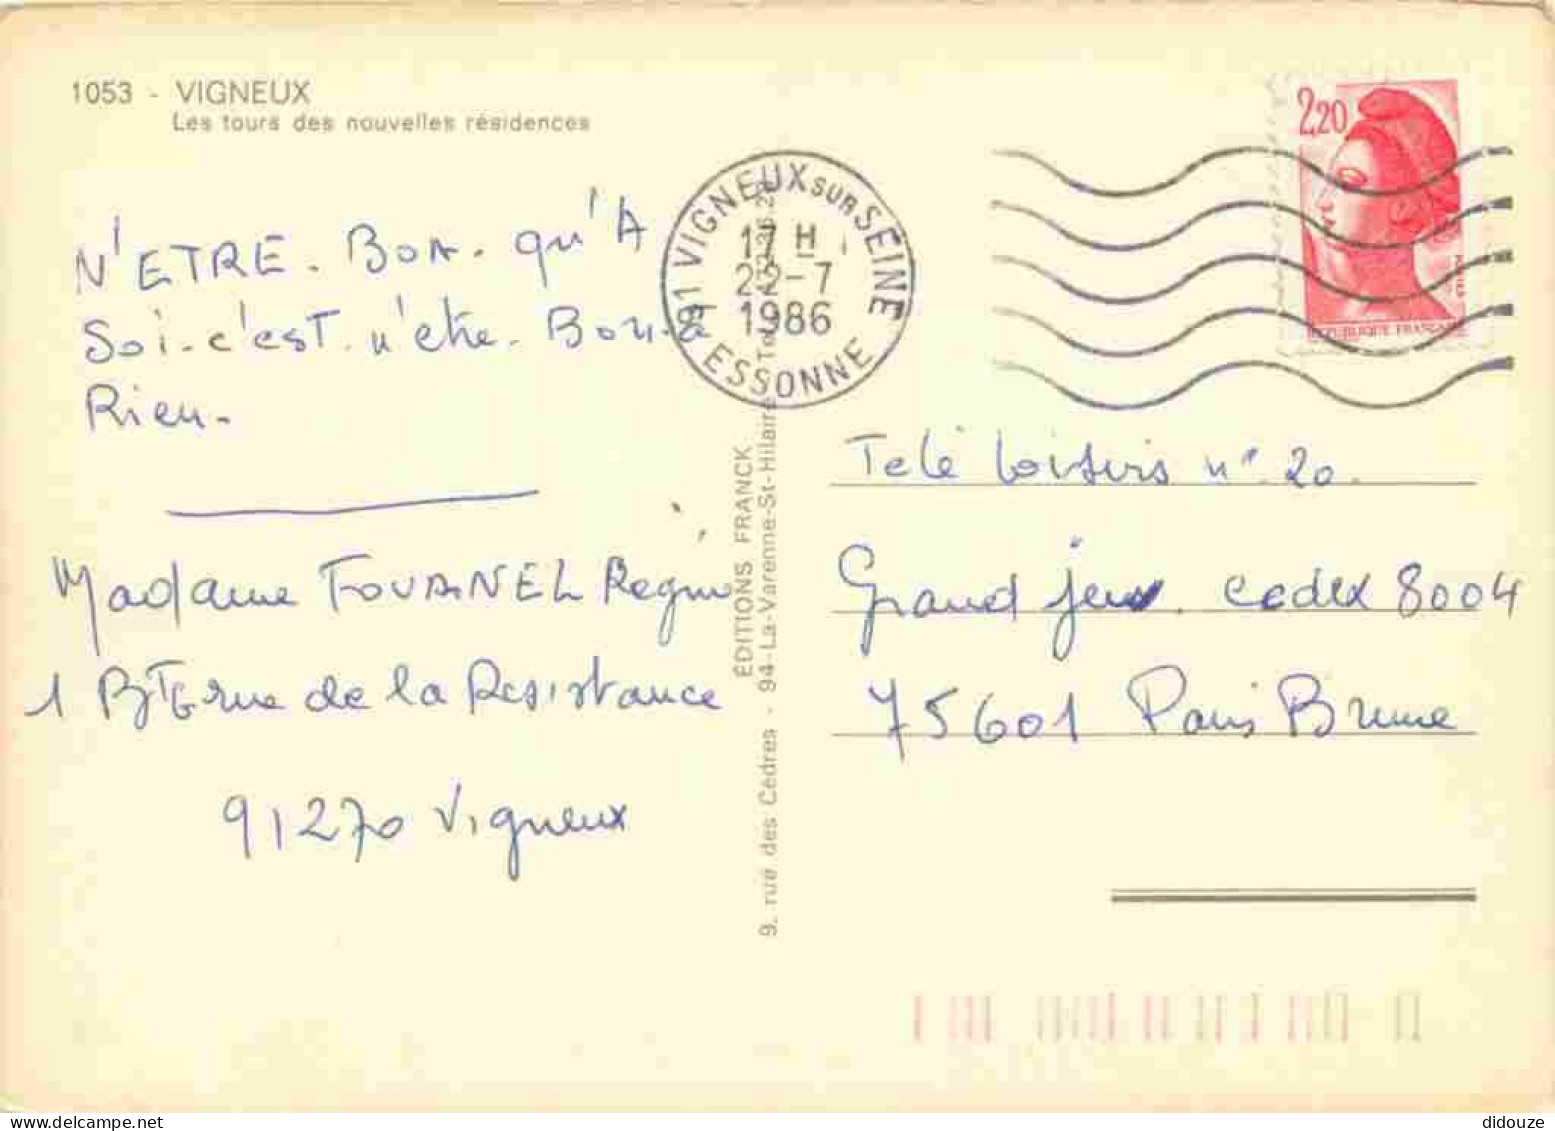 1053 - VIGNEUX
Les tours des nouvelles résidences
2,20
POSTES
REPUBLIQUE FRANÇAISE
91 VIGNEUX SUR SEINE
17 H
22-7
1986
ESSONNE
N'ETRE. BON. qu'A
Soi. c'est. n'etre. Bon. à
Rien.
Madame FOURNEL Regine
1 BTE rue de la Resistance
91270 Vigneux
ÉDITIONS FRANCK
9, rue des Cèdres - 94-La-Varenne-St-Hilaire
Telé loisirs n°. 20.
Grand jeux. cedex 8004
75601 Paris Brune
didouze